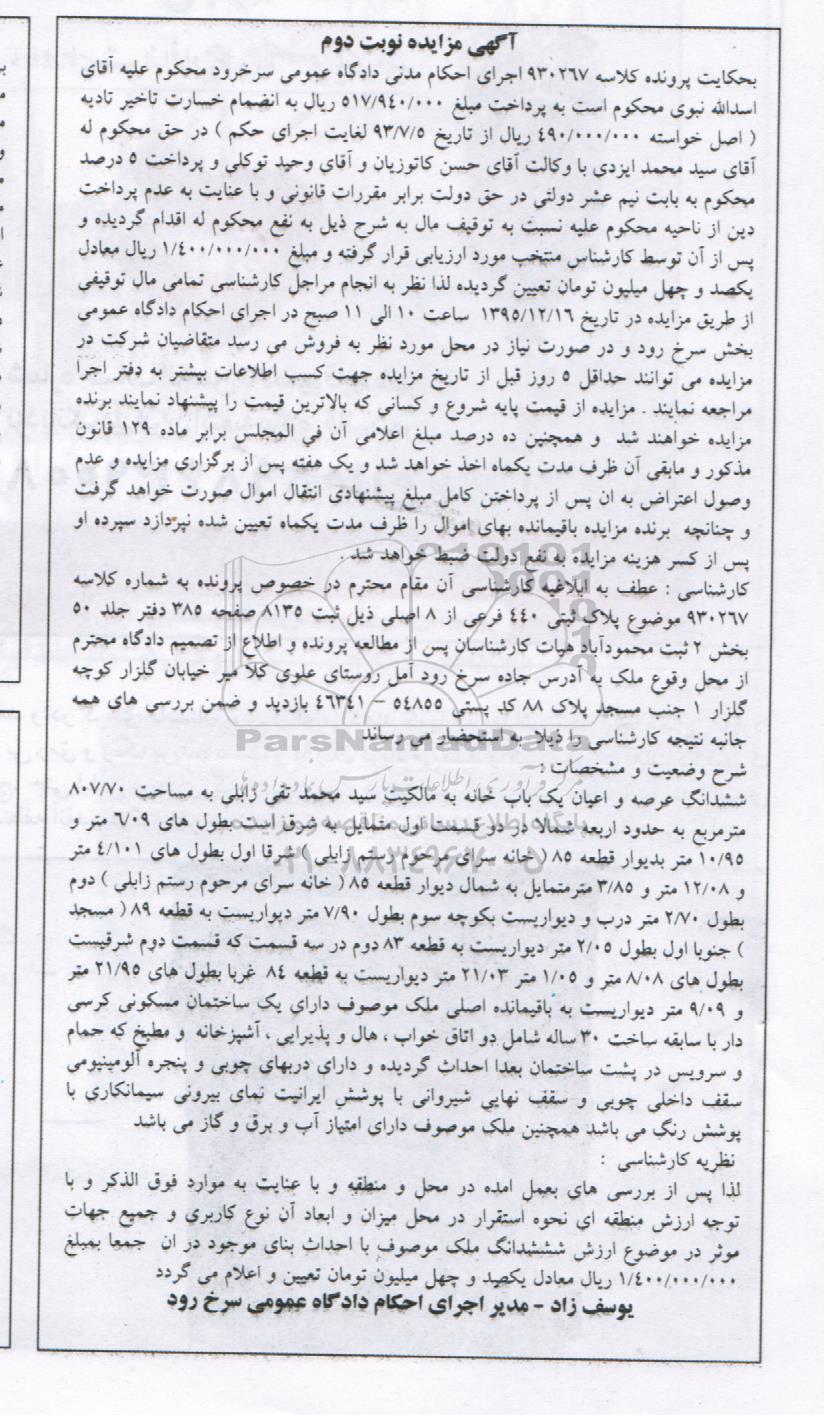 آگهی مزایده نوبت دوم
بحکایت پرونده کلاسه ۹۳۰۲۶۷ اجرای احکام مدنی دادگاه عمومی سرخرود محکوم علیه آقای
اسدالله نبوی محکوم است به پرداخت مبلغ ۵۱۷/۹۴۰/۰۰۰ ریال به انضمام خسارت تاخیر تادیه
( اصل خواسته ۴۹۰/۰۰۰/۰۰۰ ریال از تاریخ ۹۳/۷/۵ لغایت اجرای حکم ) در حق محکوم له
آقای سید محمد ایزدی با وکالت آقای حسن کاتوزیان و آقای وحید توکلی و پرداخت ۵ درصد
محکوم به بابت نیم عشر دولتی در حق دولت برابر مقررات قانونی و با عنایت به عدم پرداخت
دین از ناحیه محکوم علیه نسبت به توقیف مال به شرح ذیل به نفع محکوم له اقدام گردیده و
پس از آن توسط کارشناس منتخب مورد ارزیابی قرار گرفته و مبلغ ۱/۴۰۰/۰۰۰/۰۰۰ ریال معادل
یکصد و چهل میلیون تومان تعیین گردیده لذا نظر به انجام مراحل کارشناسی تمامی مال توقیفی
از طریق مزایده در تاریخ ۱۳۹۵/۱۲/۱۶ ساعت ۱۰ الی ۱۱ صبح در اجرای احکام دادگاه عمومی
بخش سرخ رود و در صورت نیاز در محل مورد نظر به فروش می رسد متقاضیان شرکت در
مزایده می توانند حداقل ۵ روز قبل از تاریخ مزایده جهت کسب اطلاعات بیشتر به دفتر اجرا
مراجعه نمایند . مزایده از قیمت پایه شروع و کسانی که بالاترین قیمت را پیشنهاد نمایند برنده
مزایده خواهند شد و همچنین ده درصد مبلغ اعلامی آن فی المجلس برابر ماده ۱۲۹ قانون
مذکور و مابقی آن ظرف مدت یکماه اخذ خواهد شد و یک هفته پس از برگزاری مزایده و عدم
وصول اعتراض به ان پس از پرداختن کامل مبلغ پیشنهادی انتقال اموال صورت خواهد گرفت
و چنانچه برنده مزایده باقیمانده بهای اموال را ظرف مدت یکماه تعیین شده نپردازد سپرده او
پس از کسر هزینه مزایده به نفع دولت ضبط خواهد شد .
کارشناسی : عطف به ابلاغیه کارشناسی آن مقام محترم در خصوص پرونده به شماره کلاسه
۹۳۰۲۶۷ موضوع پلاک ثبتی ۴۴۰ فرعی از ۸ اصلی ذیل ثبت ۸۱۳۵ صفحه ۳۸۵ دفتر جلد ۵۰
بخش ۲ ثبت محمودآباد هیات کارشناسان پس از مطالعه پرونده و اطلاع از تصمیم دادگاه محترم
از محل وقوع ملک به آدرس جاده سرخ رود آمل روستای علوی کلا میر خیابان گلزار کوچه
گلزار ۱ جنب مسجد پلاک ۸۸ کد پستی ۵۴۸۵۵ – ۴۶۳۴۱ بازدید و ضمن بررسی های همه
جانبه نتیجه کارشناسی را ذیلا به استحضار می رساند
ParsNamadData
شرح وضعیت و مشخصات :
ششدانگ عرصه و اعیان یک باب خانه به مالکیت سید محمد تقی زابلی به مساحت ۸۰۷/۷۰
مترمربع به حدود اربعه شمالا در دو قسمت اول متمایل به شرق است بطول های ۶/۰۹ متر و
۱۰/۹۵ متر بدیوار قطعه ۸۵ ( خانه سرای مرحوم رستم زابلی ) شرقا اول بطول های ۴/۱۰۱ متر
و ۱۲/۰۸ متر و ۳/۸۵ مترمتمایل به شمال دیوار قطعه ۸۵ ( خانه سرای مرحوم رستم زابلی ) دوم
بطول ۲/۷۰ متر درب و دیواریست بکوچه سوم بطول ۷/۹۰ متر دیواریست به قطعه ۸۹ ( مسجد
) جنوبا اول بطول ۲/۰۵ متر دیواریست به قطعه ۸۳ دوم در سه قسمت که قسمت دوم شرقیست
بطول های ۸/۰۸ متر و ۱/۰۵ متر ۲۱/۰۳ متر دیواریست به قطعه ۸۴ غربا بطول های ۲۱/۹۵ متر
و ۹/۰۹ متر دیواریست به باقیمانده اصلی ملک موصوف دارای یک ساختمان مسکونی کرسی
دار با سابقه ساخت ۳۰ ساله شامل دو اتاق خواب ، هال و پذیرایی ، آشپزخانه و مطبخ که حمام
و سرویس در پشت ساختمان بعدا احداث گردیده و دارای دربهای چوبی و پنجره آلومینیومی
سقف داخلی چوبی و سقف نهایی شیروانی با پوشش ایرانیت نمای بیرونی سیمانکاری با
پوشش رنگ می باشد همچنین ملک موصوف دارای امتیاز آب و برق و گاز می باشد
نظریه کارشناسی :
لذا پس از بررسی های بعمل امده در محل و منطقه و با عنایت به موارد فوق الذکر و با
توجه ارزش منطقه ای نحوه استقرار در محل میزان و ابعاد آن نوع کاربری و جمیع جهات
موثر در موضوع ارزش شششدانگ ملک موصوف با احداث بنای موجود در ان جمعا بمبلغ
۱/۴۰۰/۰۰۰/۰۰۰ ریال معادل یکصد و چهل میلیون تومان تعیین و اعلام می گردد
یوسف زاد - مدیر اجرای احکام دادگاه عمومی سرخ رود